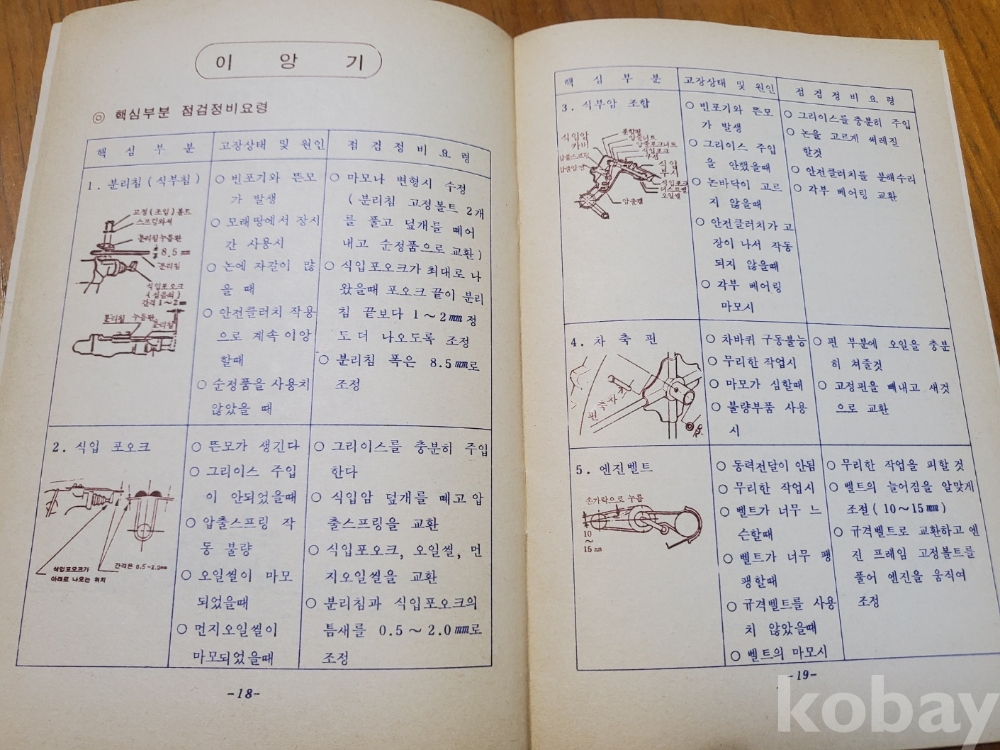 이 앙 기
◎ 핵심부분 점검정비요령
핵 심 부 분
고장상태 및 원인
점 검 정 비 요 령
1. 분리침 (식부침)
고정(조임) 볼트
스프링와셔
분리침누름판
8.5㎜
분리침
식입포오크
간격 1～2㎜
분리침 누름판
분리침
○ 빈포기와 뜬모
가 발생
○ 모래땅에서 장시
간 사용시
○ 논에 자갈이 많
을 때
○ 안전클러치 작용
으로 계속 이앙
할때
○ 순정품을 사용치
않았을 때
○ 마모나 변형시 수정
(분리침 고정볼트 2개
를 풀고 덮개를 떼어
내고 순정품으로 교환)
○ 식입포오크가 최대로 나
왔을때 포오크 끝이 분리
침 끝보다 1～2㎜정
도 더 나오도록 조정
○ 분리침 폭은 8.5㎜로
조정
2. 식입 포오크
식입포오크가
아래로 나오는 위치
간격은 0.5~2.0㎜
○ 뜬모가 생긴다
○ 그리이스 주입
이 안되었을때
○ 압출스프링 작
동 불량
○ 오일씰이 마모
되었을때
○ 먼지오일씰이
마모되었을때
○ 그리이스를 충분히 주입
한다
○ 식입암 덮개를 빼고 압
출스프링을 교환
○ 식입포오크, 오일씰, 먼
지오일씰을 교환
○ 분리침과 식입포오크의
틈새를 0.5～2.0㎜로
조정
-18-
핵 심 부 분
고장상태 및 원인
점 검 정 비 요 령
3. 식부암 조합
식입암
카바
압출스프링
압출캠
식입포오크
오일씰
○ 빈포기와 뜬모
가 발생
○ 그리이스 주입
을 안했을때
○ 논바닥이 고르
지 않을때
○ 안전클러치가 고
장이 나서 작동
되지 않을때
○ 각부 베어링
마모시
○ 그리이스를 충분히 주입
○ 논을 고르게 써레질
할것
○ 안전클러치를 분해수리
○ 각부 베어링 교환
4. 차 축 핀
핀
○ 차바퀴 구동불능
○ 무리한 작업시
○ 마모가 심할때
○ 불량부품 사용
시
○ 핀 부분에 오일을 충분
히 쳐줄것
○ 고정핀을 빼내고 새것
으로 교환
5. 엔진벨트
손가락으로 누름
10
～
15㎜
○ 동력전달이 안됨
○ 무리한 작업시
○ 벨트가 너무 느
슨할때
○ 벨트가 너무 팽
팽할때
○ 규격벨트를 사용
치 않았을때
○ 벨트의 마모시
○ 무리한 작업을 피할 것
○ 벨트의 늘어짐을 알맞게
조정 (10～15㎜)
○ 규격벨트로 교환하고 엔
진 프레임 고정볼트를
풀어 엔진을 움직여
조정
-19-
kobay